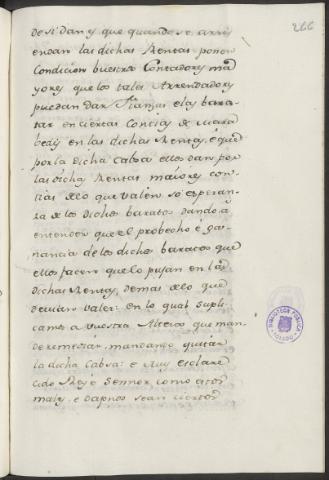 266
de si dan y que quando se arri
endan las dichas Rentas ponen
Condicion buestros Contadores ma
yores que los tales Arrendadores
puedan dar fianzas e las bara
tar en ciertas Contias de mara
bedis en las dichas Rentas, e que
por la dicha Cabsa ellos dan por
las dichas Rentas maiores con
tias de lo que valen so esperan
za de los dichos baratos dando a
entender que el probecho e ga
nancia de los dichos baratos que
ellos facen que lo pujan en las
dichas Rentas, demas de lo que
devian valer: en lo qual supli
camos a vuestra Alteza que man
de remediar, mandando quitar
la dicha Cabsa: e Muy esclare
cido Rey e Sennor como estos
males, e dapnos sean ciertos
BIBLIOTECA PUBLICA
TOLEDO